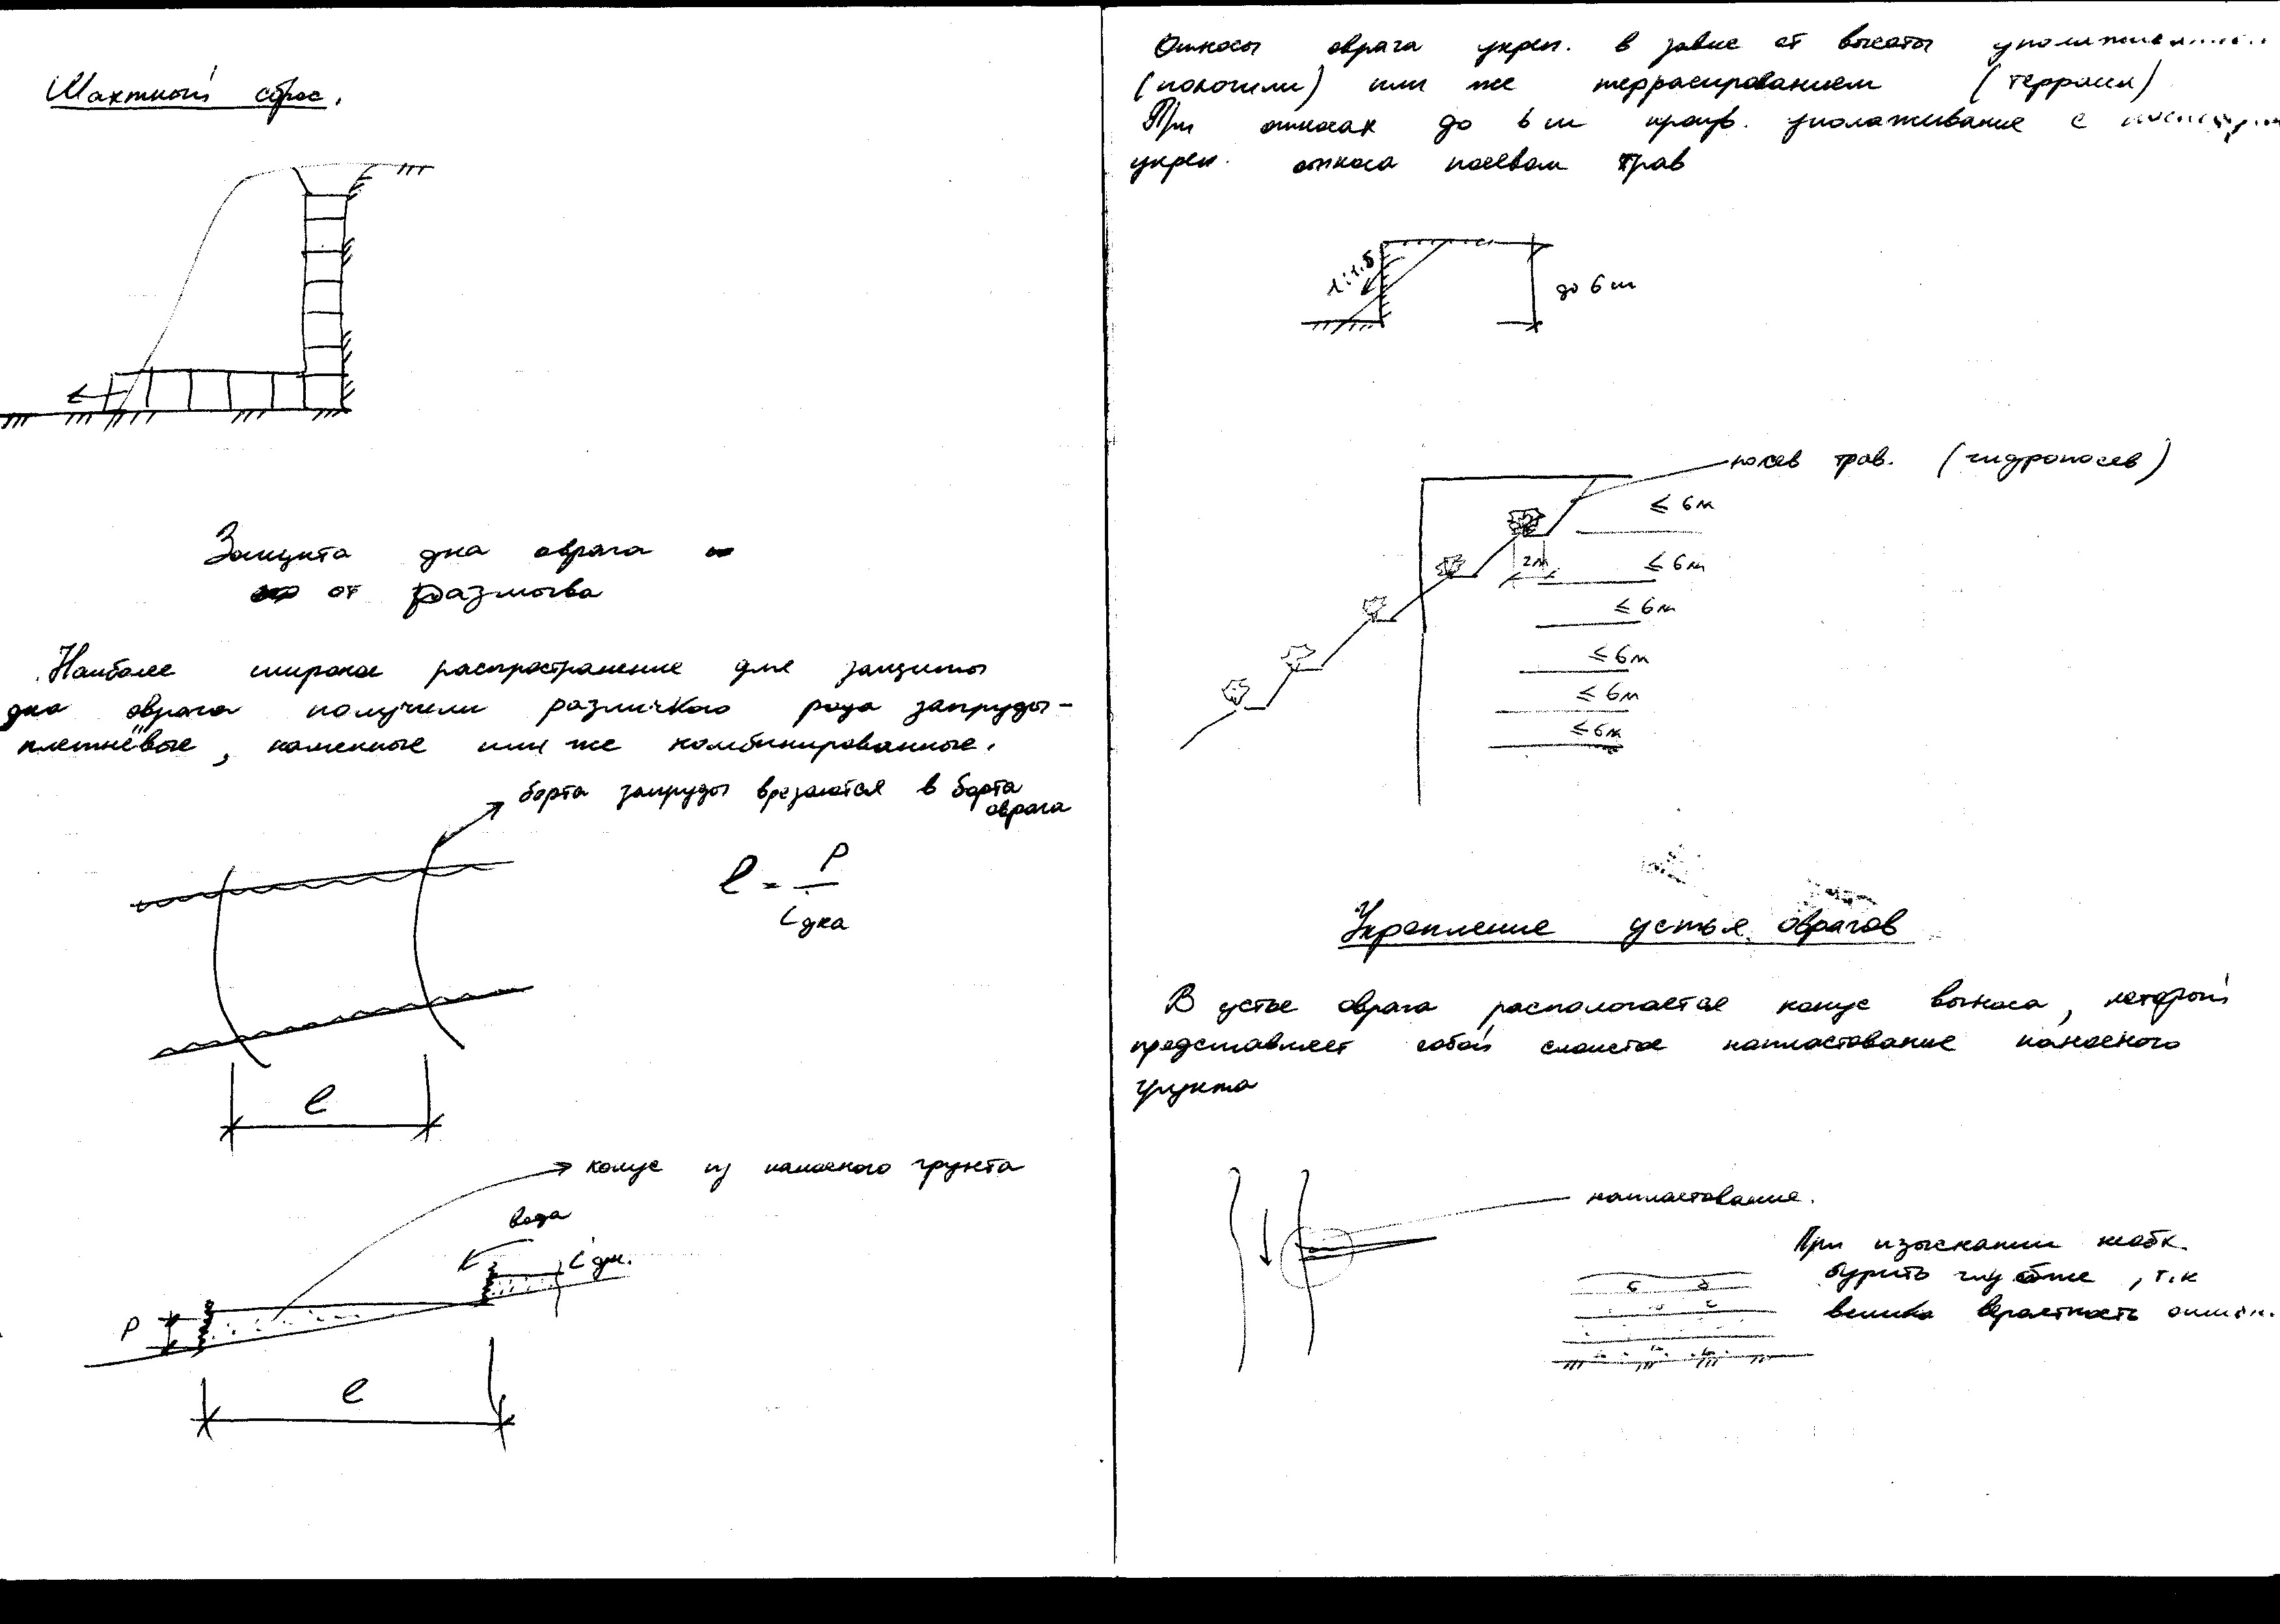 Шахтный сброс.
Защита дна оврага
от размыва
Наиболее широкое распространение для защиты
дна оврага получили различного рода запруды -
плетнёвые, каменные или же комбинированные.
борта запруды врезаются в борта
оврага
l = P
i дна
l
конус из наносного грунта
вода
i дн.
P
l
Откосы оврага укреп. в завис от высоты
(пологими) или же террасированием (террасы)
При откосах до 6 м произв. уполаживание с
укреп. откоса посевом трав
1:1.5
до 6 м
посев трав. (гидропосев)
≤ 6м
2м
≤ 6м
≤ 6м
≤ 6м
≤ 6м
≤ 6м
Укрепление устья оврагов
В устье оврага распологается конус выноса, который
представляет собой слоистое напластование наносного
грунта
напластование.
При изыскании необх.
бурить глубже, т.к
велика вероятность